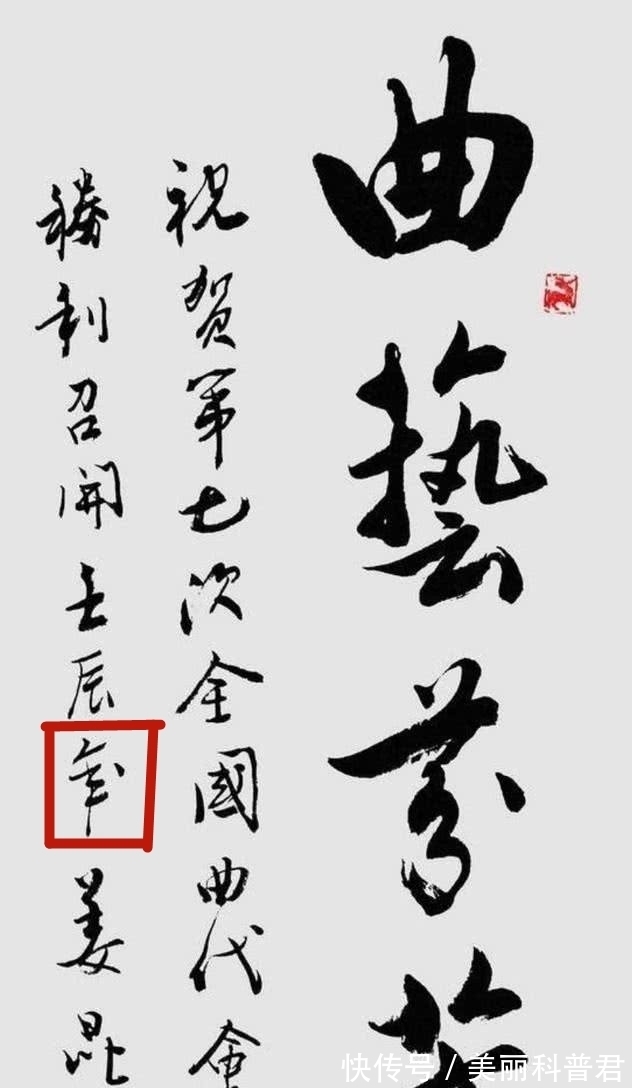 曲藝芬
祝贺第七次全國曲代會
勝利召開壬辰年姜昆
快传号 / 美丽科普君